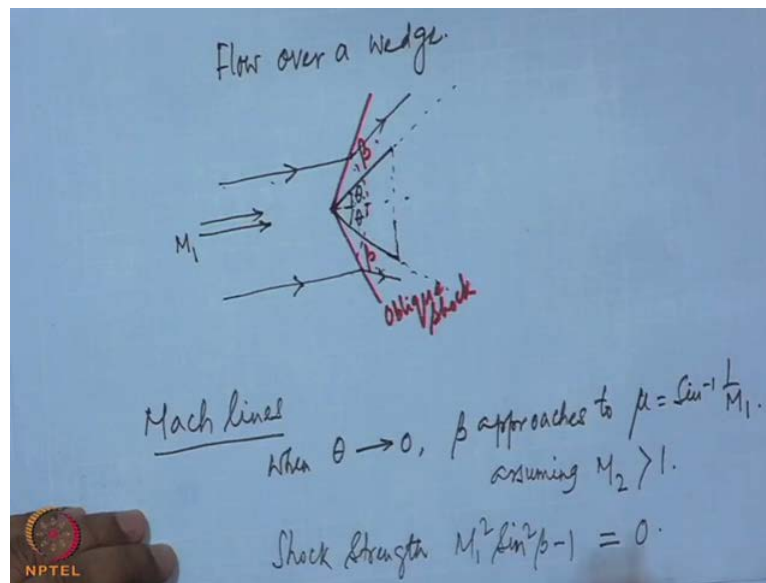 Flow over a wedge.
β
θ
θ
M₁
β
Oblique
shock
Mach lines
when θ → 0, β approaches to μ = Sin⁻¹ 1/M₁.
assuming M₂ > 1.
Shock Strength M₁² Sin²β - 1 = 0.
NPTEL